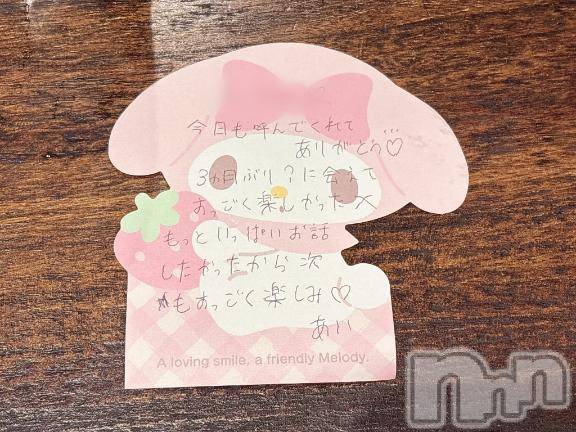 今日も呼んでくれて
ありがとう♡
3ヵ月ぶり?に会えて
すっごく楽しかった
もっといっぱいお話
したかったから次
もすっごく楽しみ♡
あい
A loving smile, a friendly Melody.
nnn